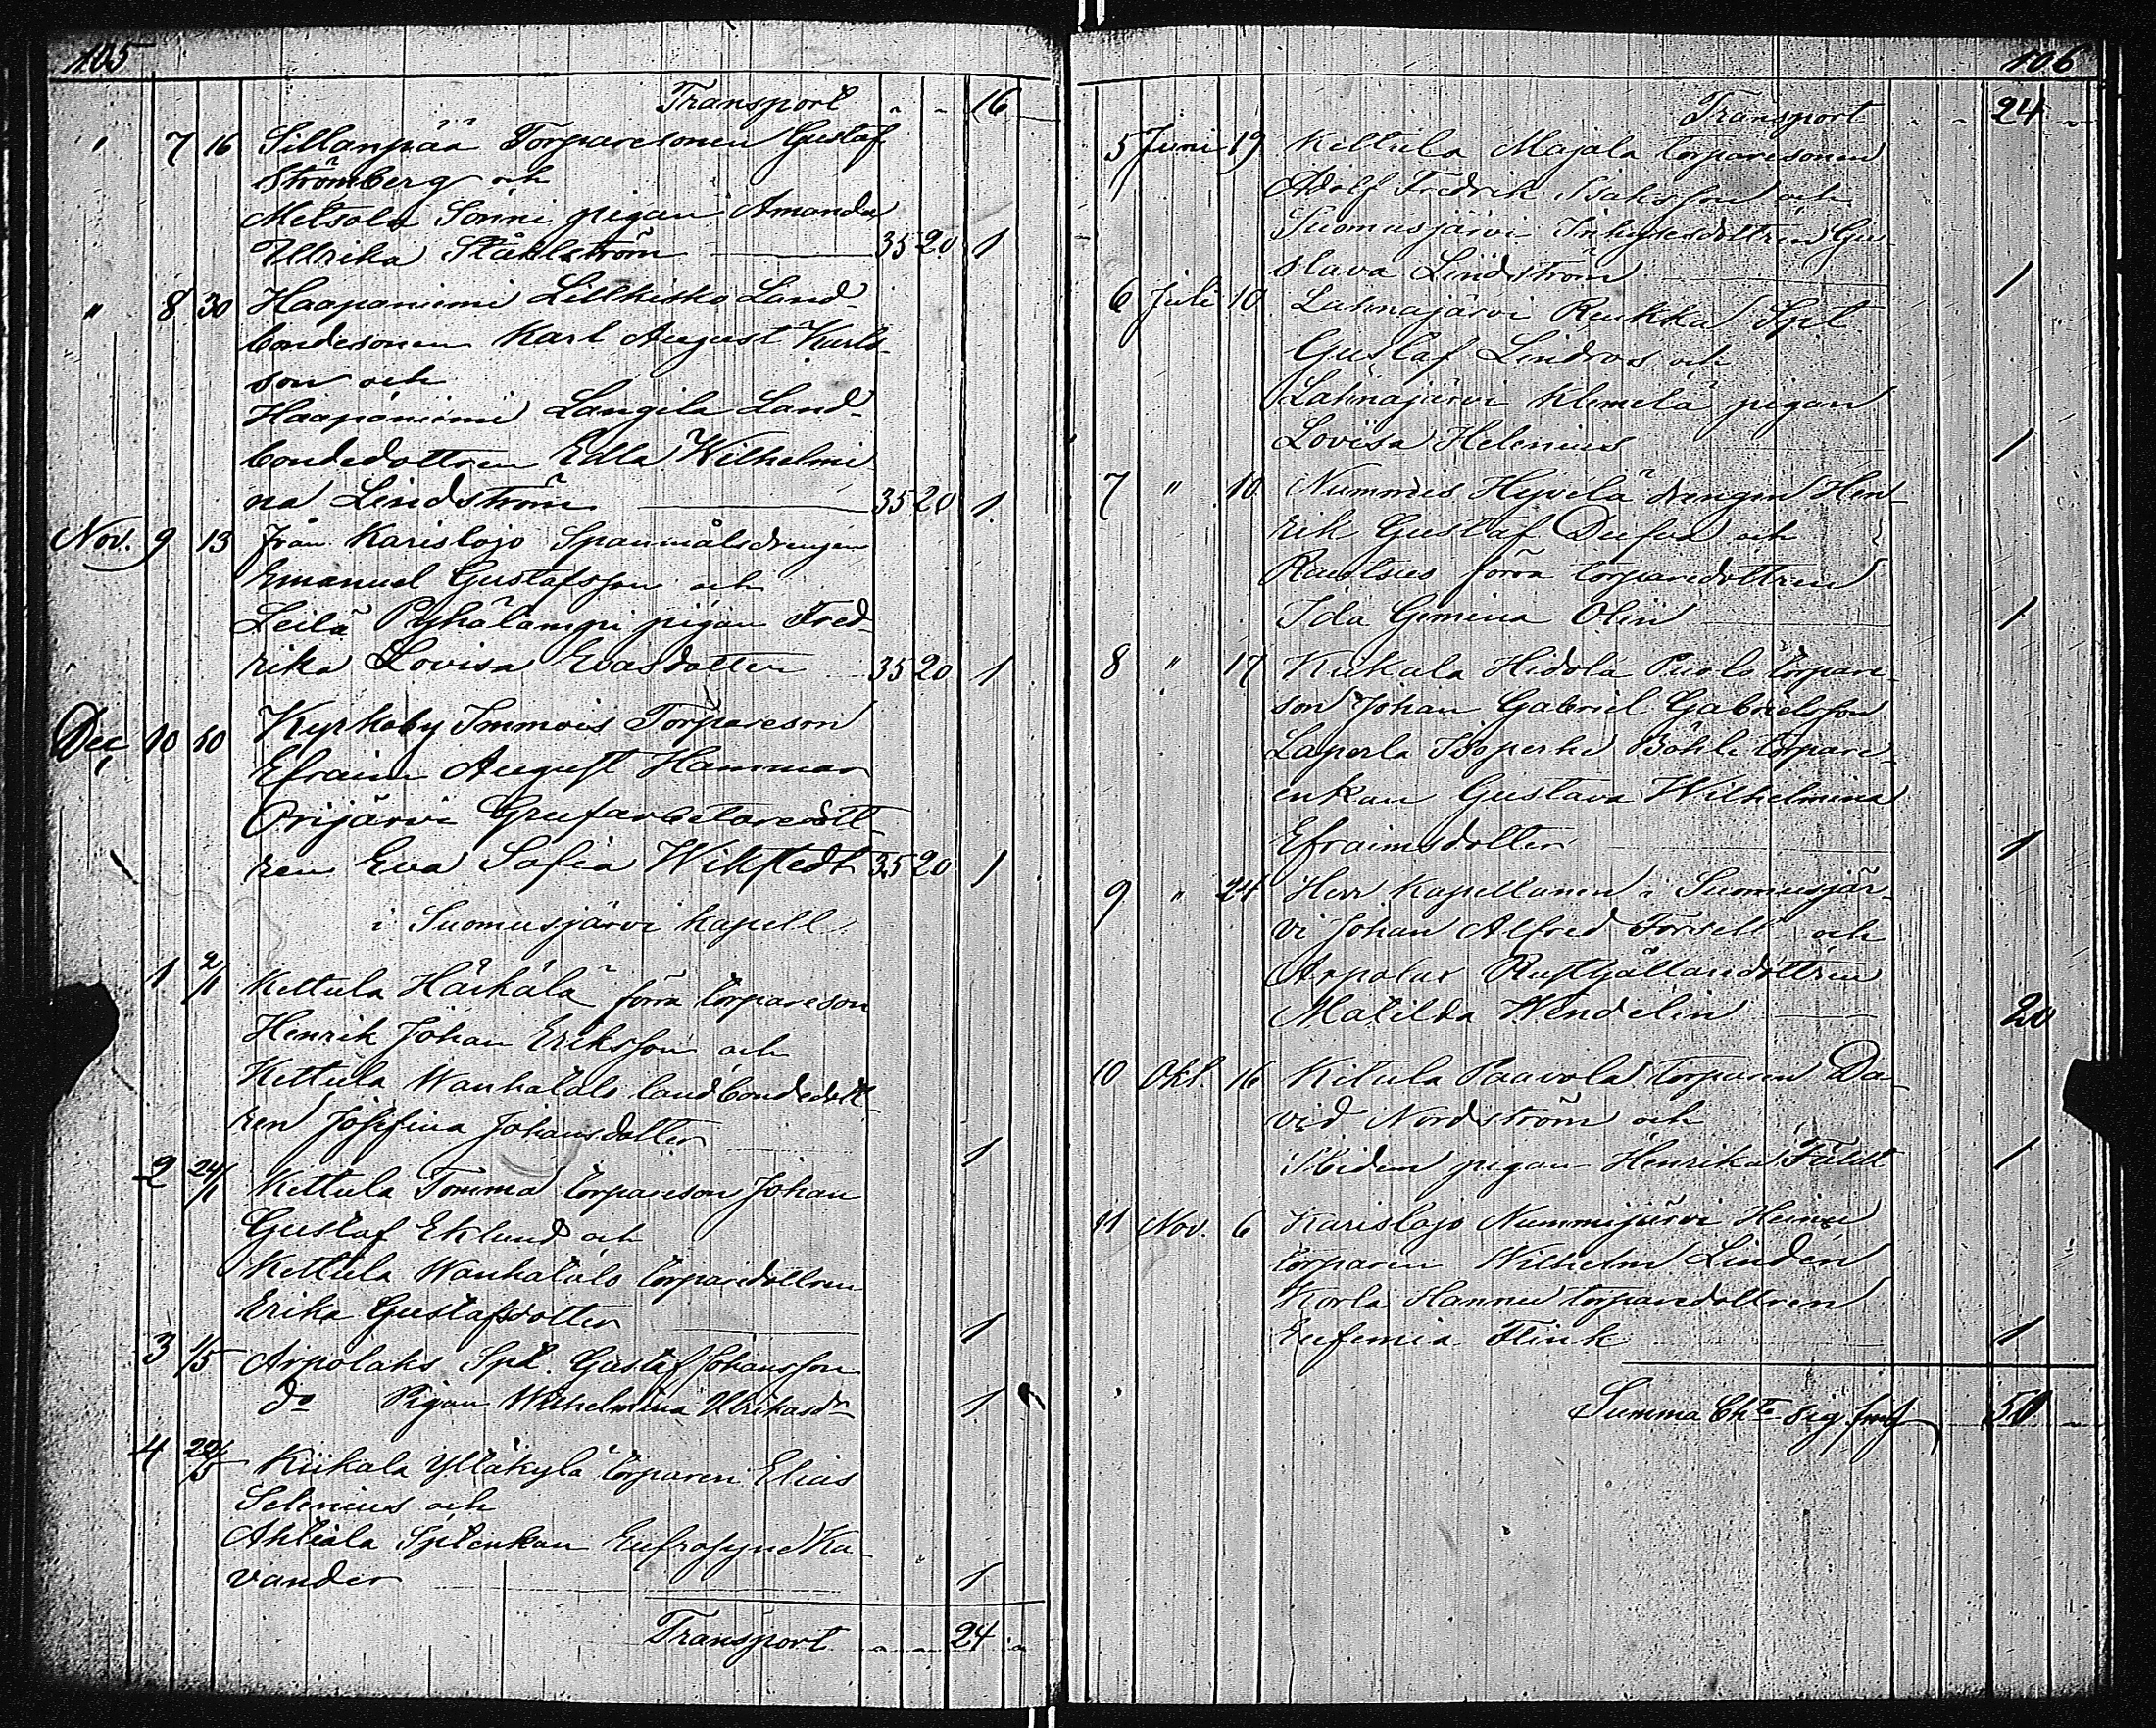 105
Transport " - 16 -
" 7 16 Sillanpää Torparesonen Gustaf
Strömberg och
Metsola Sönni pigan Amanda
Ullrika Ståhlström 35 20 1
" 8 30 Haapaniemi Lillkisko Land
bondesonen Karl August Karls-
son och
Haapaniemi Laugila Land-
bondedottren Edla Wilhelmi-
na Lindström 35 20 1
Nov. 9 13 från Karislojo Spanmålsdrengen
Emanuel Gustafsson och
Leilä Pyhälampi pigan Fred-
rika Lovisa Evasdotter 35 20 1
Dec 10 10 Kyrkoby Immois Torpareson
Efraim August Hammar
Orijärvi Grufarbetaredott-
ren Eva Sofia Wikstedt 35 20 1
i Suomusjärvi kapell
1 2/1 Kettula Härkälä förra torpareson
Henrik Johan Eriksson och
Kettula Wanhatalo landbondedott-
ren Josefina Johansdotter 1
2 24/1 Kettula Tomma torpareson Johan
Gustaf Eklund och
Kettula Wanhatalo torparedottren
Erika Gustafsdotter 1
3 1/5 Arpolaks Spl. Gustaf Johansson
do Pigan Wilhelmina Ulrikasdr 1
4 22/5 Kiikala Yltäkylä torparen Elias
Selenius och
Ahtiala Splenkan Eufrosyne Ka-
vander 1
Transport " " 24 "
106
Transport " - 24 "
5 Juni 19 Kettula Majala torparesonen
Adolf Fredrik Isaksson och
Suomusjärvi Inhysesdottren Gu-
stava Lindström 1
6 Juli 10 Lahnajärvi Spl
Gustaf Lindros och
Lahnajärvi Klemelä pigan
Lovisa Helenius 1
7 " 10 Nummis Hyvelä drengen Hen-
rik Gustaf Dufva och
förra torparedottren
Ida Gemina Olin 1
8 " 17 Kiikala Hidola torpare-
son Johan Gabriel Gabrielsson
Laperla Isoperhe Böhle torpare-
enkan Gustava Wilhelmina
Efraimsdotter 1
9 " 24 Herr Kapellanen i Suomusjär-
vi Johan Alfred Forsell och
Arpolax Rusthållaredottren
Matilda Wendelin 20
10 Okt. 16 Kitula Paavola torparen Da-
vid Nordström och
pigan Henrika Fäldt 1
11 Nov. 6 Karislojo Nummijärvi Heinu
torparen Wilhelm Lindén
Korla Hannu torparedottren
Eufemia Flink 1
Summa 50 "